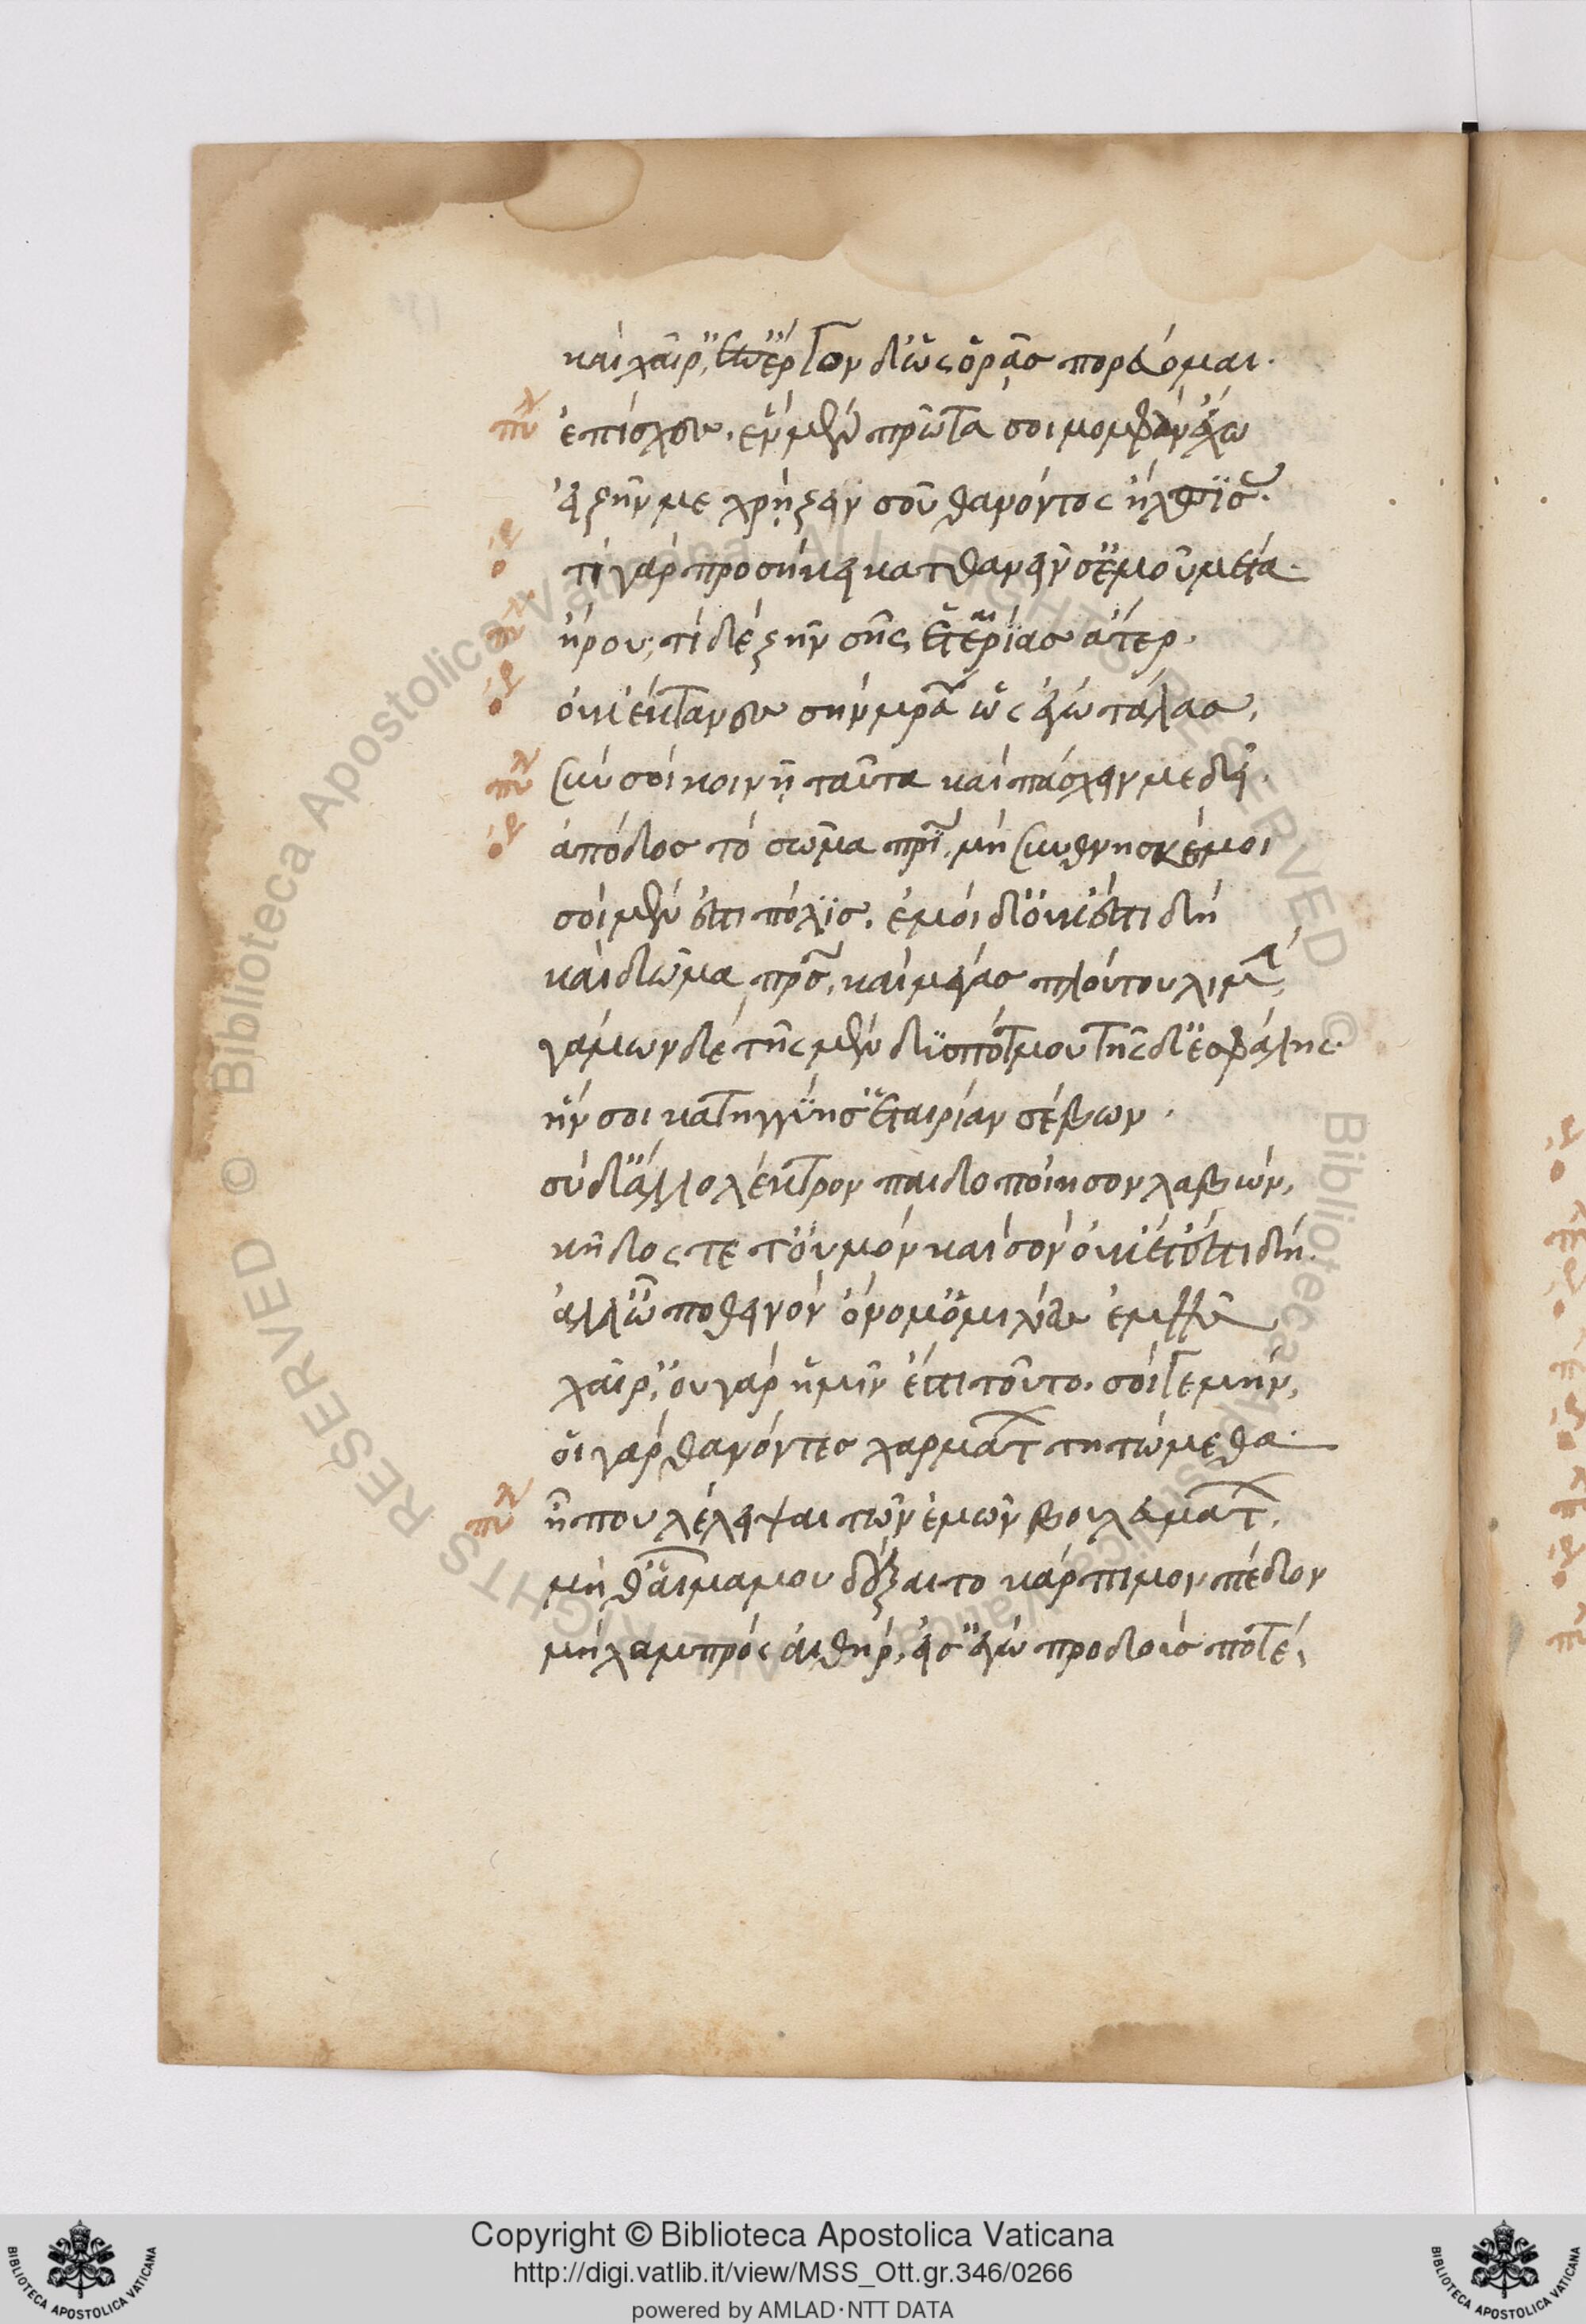 καὶ χαῖρ', ἐπ' ἔργον δ' ὡς ὁρᾶς πορεύομαι.
πυλ ἐπίσχες. ἓν μὲν πρῶτά σοι μομφὴν ἔχω
εἰ ζῆν με χρήζειν σοῦ θανόντος ἤλπισας.
ὀρ τί γὰρ προσήκει κατθανεῖν σ' ἐμοῦ μέτα.
πυ ἤρου; τί δὲ ζῆν σῆς ἑταιρίας ἄτερ.
ὀρ οὐκ ἔκτανες σὴν μρα ὡς ἐγὼ τάλας,
πυλ σὺν σοὶ κοινῇ ταῦτα καὶ πάσχειν με δεῖ.
ὀρ ἀπόδος τὸ σῶμα πρι, μὴ σύνθνησκέ μοι
σοὶ μὲν ἔστι πόλις. ἐμοὶ δ' οὐκ ἔστι δὴ
καὶ δῶμα πρς, καὶ μέγας πλούτου λιμὴν,
γάμων δὲ τῆς μὲν δυσπότμου τῆσδ' ἐσφάλης.
ἥν σοι κατηγγύησ' ἑταιρίαν σέβων.
σὺ δ' ἄλλο λέκτρον παιδοποίησον λαβὼν,
κῆδος τε τοὐμὸν καὶ σὸν οὐκέτ' ἔστι δὴ.
ἀλλ' ὦ ποθεινὸν ὄνομ' ὁμιλίας ἐμῆς
χαῖρ', οὐ γὰρ ἡμῖν ἔστι τοῦτο. σοί γε μὴν,
οἱ γὰρ θανόντες χαρμάτων τητώμεθα.
πυλ ἦ που λέλειψαι τῶν ἐμῶν βουλευμάτων.
μὴ θ' αἷμά μου δέξαιτο κάρπιμον πέδον
μὴ λαμπρὸς αἰθήρ, εἴ σ' ἐγὼ προδούς ποτε,
Copyright © Biblioteca Apostolica Vaticana
http://digi.vatlib.it/view/MSS_Ott.gr.346/0266
powered by AMLAD·NTT DATA
BIBLIOTECA APOSTOLICA VATICANA
BIBLIOTECA APOSTOLICA VATICANA
© Biblioteca Apostolica Vaticana ALL RIGHTS RESERVED
© Biblioteca Apostolica Vaticana ALL RIGHTS RESERVED